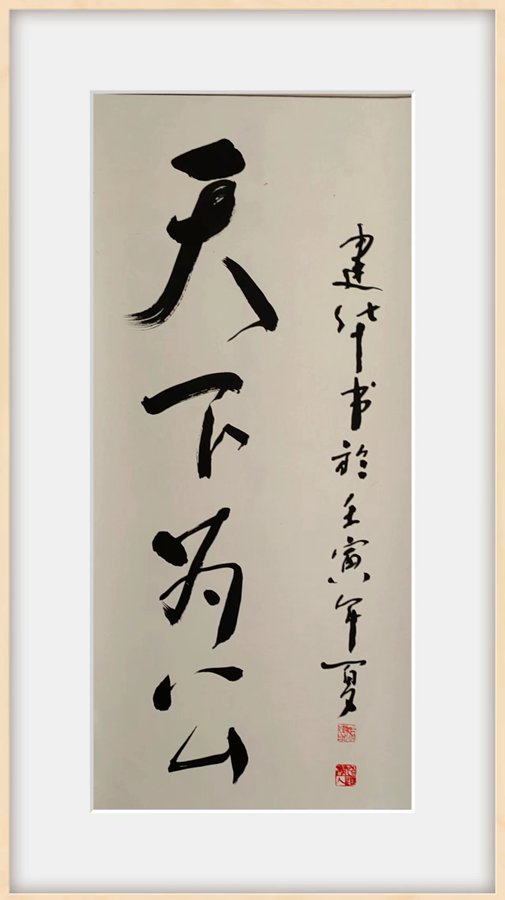 天下为公
建华书於壬寅年夏